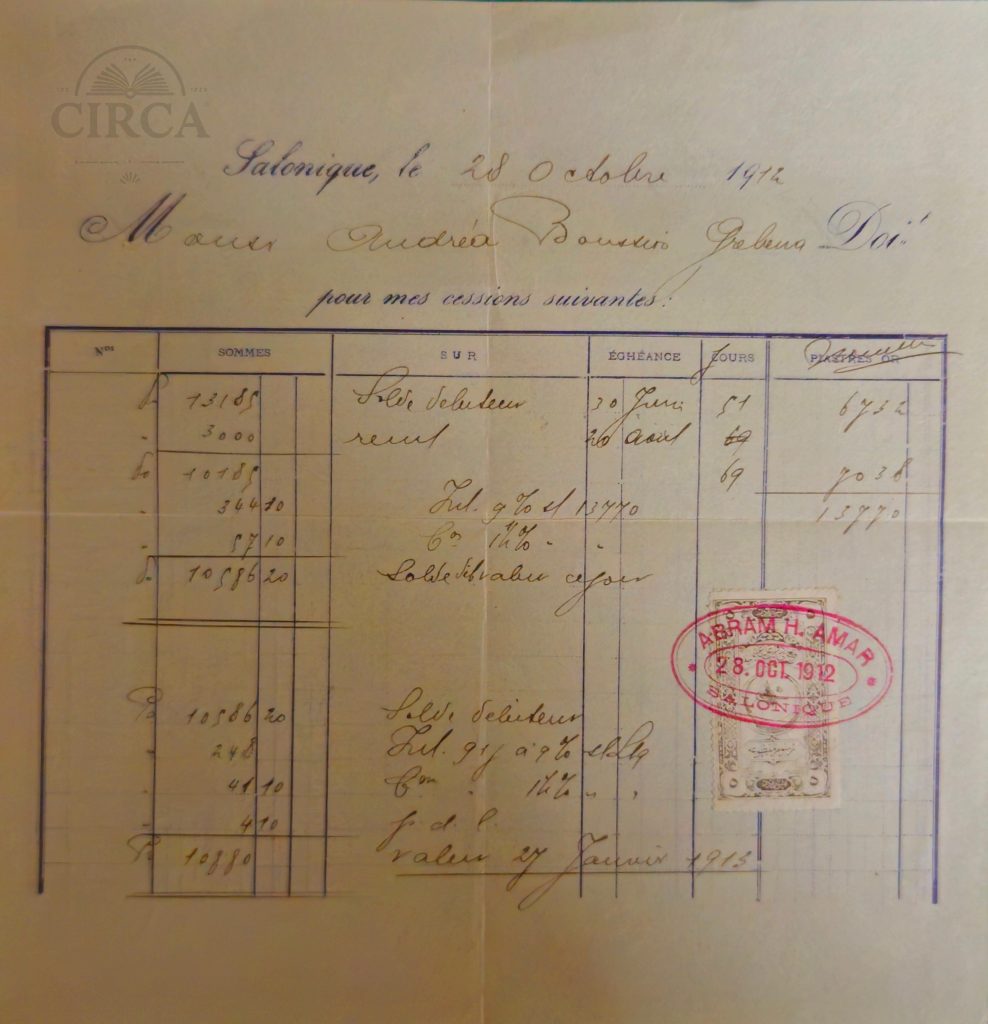 CIRCA
Salonique, le 28 Octobre 1912
Monsr Andréa Boussios Grebena Doit
pour mes cessions suivantes:
Nos SOMMES SUR ÉCHÉANCE COURS PIASTRES OR
Ps 13185 Solde débiteur 30 Juin 51 6732
" 3000 remt 20 Aout 69
Ps 10185 69 7038
" 344 10 Int. 9% s/ 13770 13770
" 57 10 Con 1/2% " "
Ps 10586 20 Solde deb valeur ce jour
Ps 10586 20 Solde debiteur
" 248 Int. 91 j à 9%
" 41 10 Con " " "
" 4 10 p. d. l.
Ps 10880 valeur 27 Janvier 1913
ABRAM H. AMAR
28. OCT. 1912
SALONIQUE